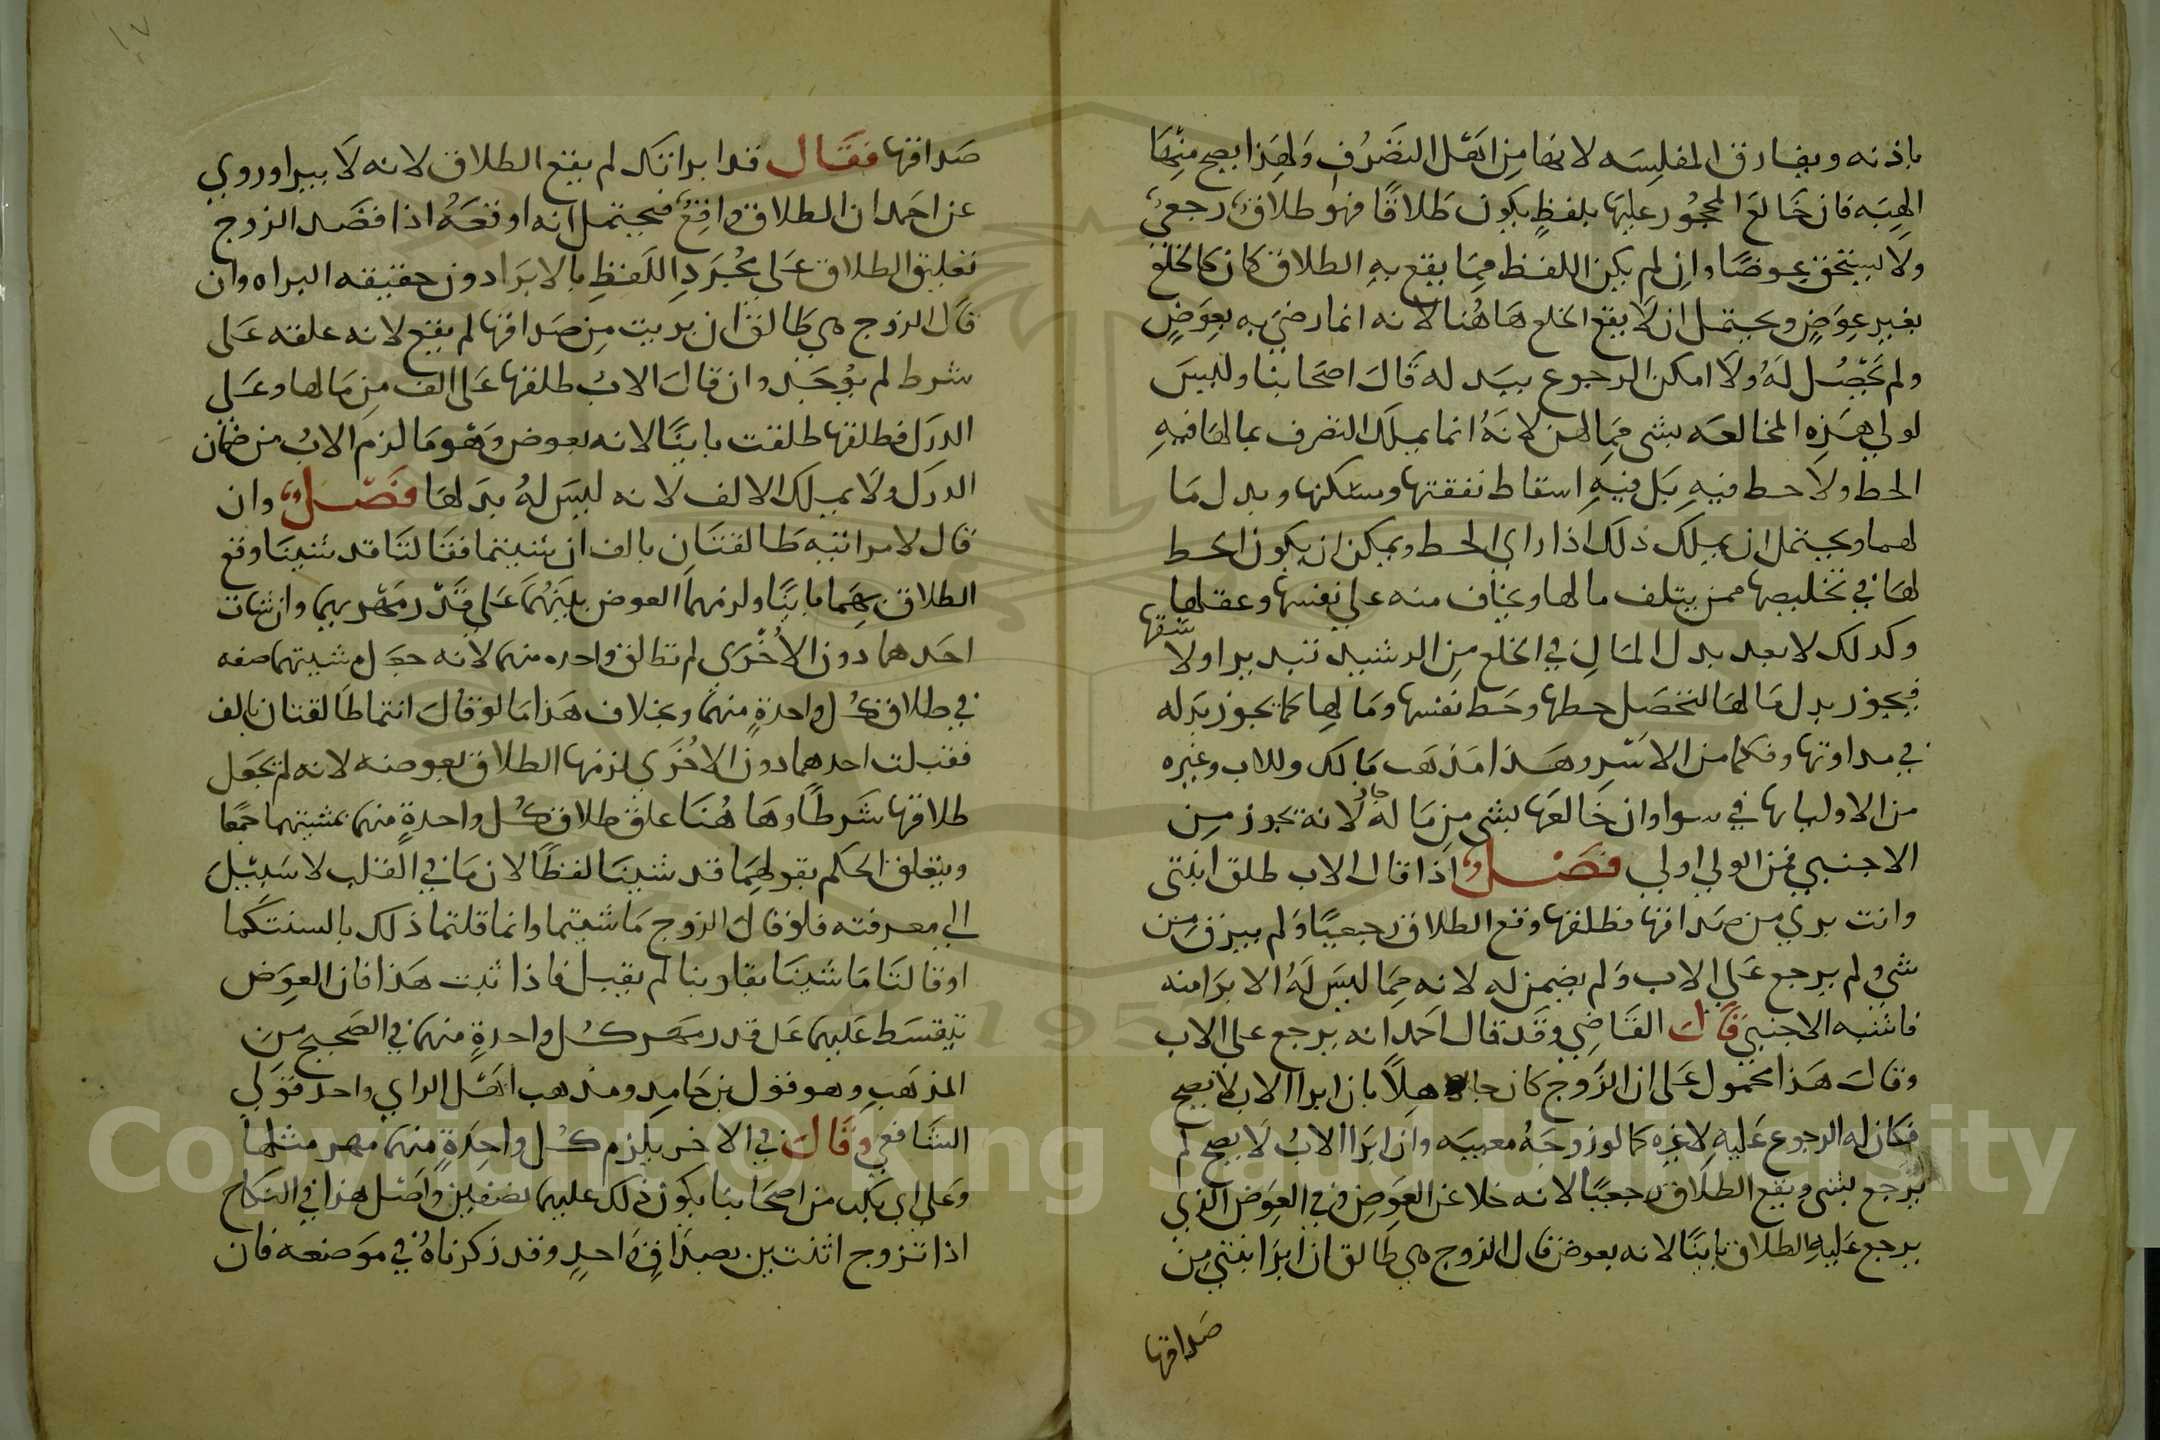 باذنه ويفارق المفلسه لانها من اهل التصرف ولهذا يصح منها
الهبه فان خالع المحجور عليها بلفظ يكون طلاقا فهو طلاق رجعي
ولا يستحق عوضا وان لم يكن اللفظ مما يقع به الطلاق كان كالخلع
بغير عوض ويحتمل ان لا يقع الخلع هاهنا لانه انما رضي به بعوض
ولم يحصل له ولا امكن الرجوع ببدله قال اصحابنا وليس
لولي هذه المخالعه بشي من مالها لانه انما يملك التصرف بما لها فيه
الحظ ولا حظ فيه بل فيه اسقاط نفقتها ومسكنها وبدل ما
لهما ويحتمل ان يملك ذلك اذا راي الحظ ويمكن ان يكون الحظ
لها في تخليصها ممن يتلف مالها ويخاف منه علي نفسها وعقلها
وكذلك لا يعد بدل المال في الخلع من الرشيد تبديرا ولا سفها
فيجوز بدل مالها لتحصل حظها وحظ نفسها ومالها كما يجوز بدله
في مداوتها وفكها من الاسر وهذا مذهب مالك وللاب وغيره
من الاوليا بها في سوا وان خالعها بشي من ماله جاز لانه يجوز من
الاجنبي فمن الولي اولي فصل اذا قال الاب طلق ابنتي
وانت بري من صداقها فطلقها وقع الطلاق رجعيا ولم يبرى من
شي ولم يرجع علي الاب ولم يضمن له لانه مما ليس له الابرا منه
فاشبه الاجنبي قال القاضي وقد قال احمد انه يرجع علي الاب
وقال هذا محمول علي ان الزوج كان جاهلا بان ابرا الاب لا يصح
فكان له الرجوع عليه لانه غره كما لو زوجه معيبه وان ابرا الاب لا يصح لم
يرجع بشي ويقع الطلاق رجعيا لانه خلا عن العوض وفي العوض الذي
يرجع عليه الطلاق باينا لانه بعوض قال الزوج هي طالق ان ابراتني من
صداقها
صداقها فقال قد ابراتك لم يقع الطلاق لانه لا يبرا وروي
عن احمد ان الطلاق واقع فيحتمل انه اوقعه اذا قصد الزوج
تعليق الطلاق علي مجرد اللفظ بالابرا دون حقيقه البراه وان
قال الزوج هي طالق ان بريت من صداقها لم يقع لانه علقه علي
شرط لم يوجد وان قال الاب طلقها علي الف من مالها وعلي
الدرك فطلقها طلقت باينا لانه بعوض وهو ما لزم الاب من ضمان
الدرك ولا يملك الالف لانه ليس له بدلها فصل وان
قال لامراتيه طالقتان بالف ان شيتما فقالتا قد شينا وقع
الطلاق بهما باينا ولزمهما العوض بينهما علي قدر مهريهما وان شات
احدهما دون الاخرى لم تطلق واحده منهما لانه جعل مشيتهما صفه
في طلاق كل واحدة منهما وبخلاف هذا ما لو قال انتما طالقتان بالف
فقبلت احدهما دون الاخرى لزمها الطلاق بعوضه لانه لم يجعل
طلاقها شرطا وهاهنا علق طلاق كل واحدة منهما بمشيتهما جمعا
ويتعلق الحكم بقولهما قد شينا لفظا لان ما في القلب لا سبيل
الي معرفته فلو قال الزوج ما شيتما وانما قلتما ذلك بالسنتكما
او قالتا ما شينا بقلوبنا لم يقبل فاذا ثبت هذا فان العوض
يتقسط عليهما علي قدر مهر كل واحدة منهما في الصحيح من
المذهب وهو قول بن حامد ومذهب اهل الراي واحد قولي
الشافعي وقال في الاخر يلزم كل واحدة منهما مهر مثلها
وعلي قول ابي بكر من اصحابنا يكون ذلك عليهما نصفين واصل هذا في النكاح
اذا تزوج اثنتين بصداق واحد وقد ذكرناه في موضعه فان